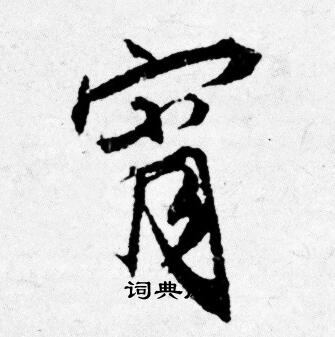 宵
词典